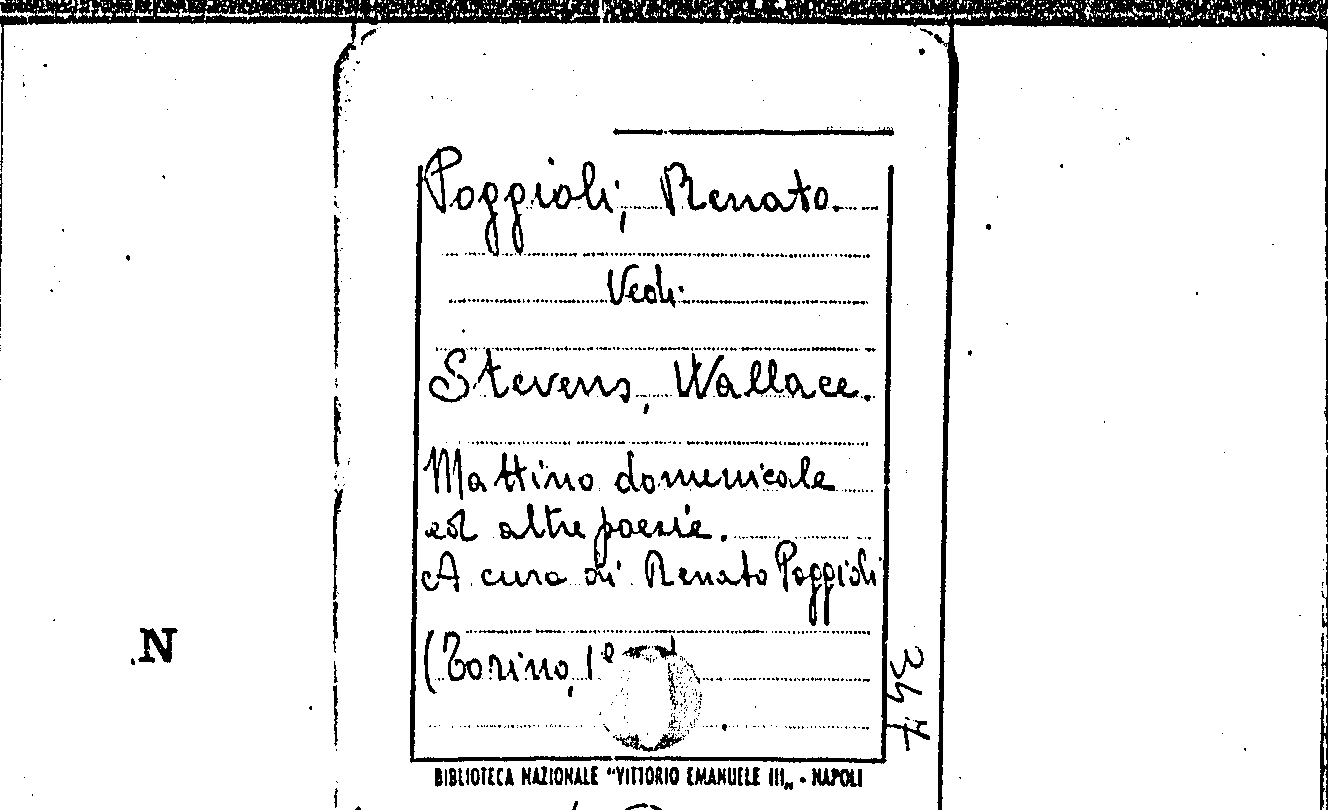 Poggioli, Renato.
Vedi:
Stevens, Wallace.
Mattino domenicale
ed altre poesie.
A cura di Renato Poggioli
(Torino, 1°
N
347
BIBLIOTECA NAZIONALE "VITTORIO EMANUELE III„ - NAPOLI